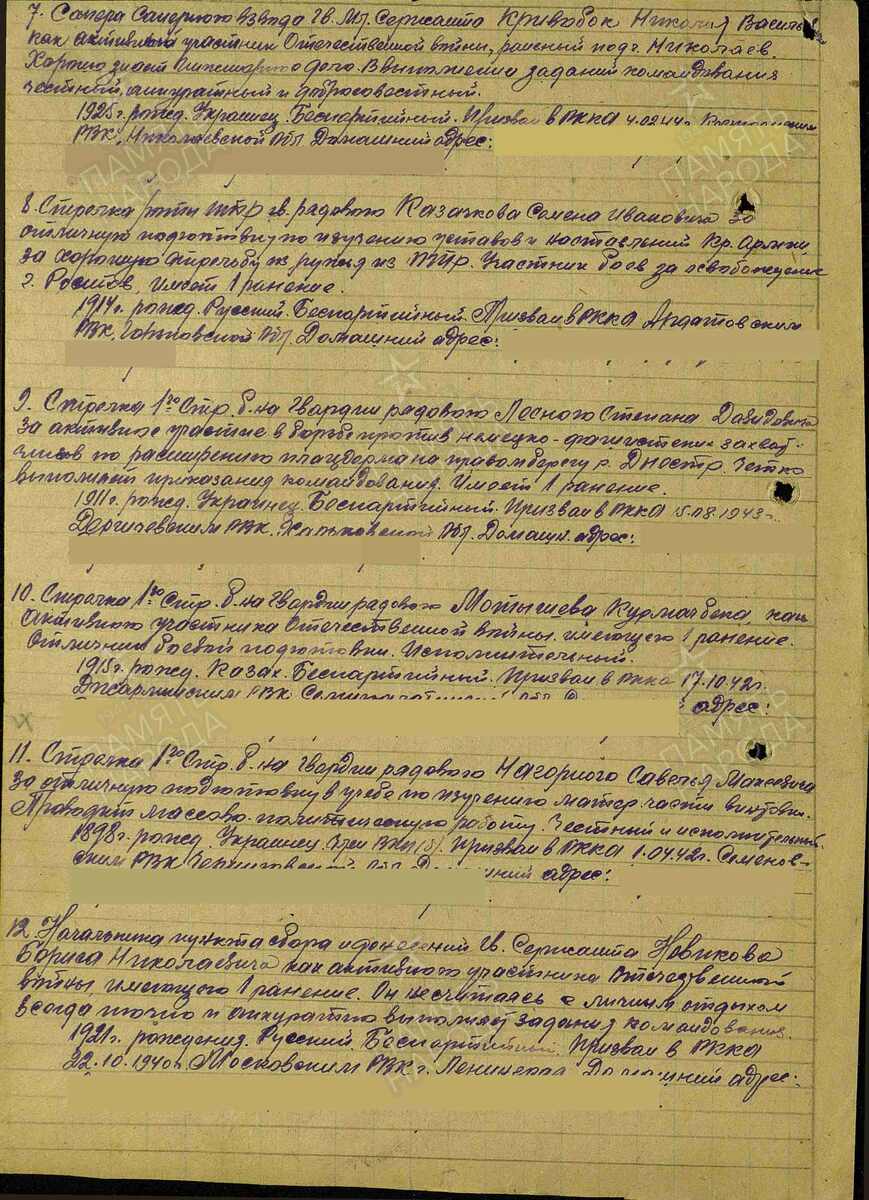 7. Сапера Саперного взвода Гв. Мл. Сержанта Кривобок Николая Василь
как активный участник Отечественной войны, раненый под г. Николаев.
Хорошо знает Инженерное дело. В выполнении заданий командования
честный, аккуратный и добросовестный.
1925 г. рожд. Украинец. Беспартийный. Призван в РККА 4.02.44 г.
РВК, Николаевской Обл. Домашний адрес:
8. Стрелка роты ПТР гв. рядового Казачкова Семена Ивановича за
отличную подготовку по изучению уставов и наставлений Кр. Армии
за хорошую стрельбу из ружья из ПТР. Участник боев за освобождение
г. Ростов, имеет 1 ранение.
1914 г. рожд. Русский. Беспартийный. Призван в РККА Ардатовским
РВК, Горьковской Обл. Домашний адрес:
9. Стрелка 1го Стр. б-на Гвардии рядового Лесного Степана Давидовича
за активное участие в борьбе против немецко-фашистских захват-
чиков по расширению плацдарма на правом берегу р. Днестр. Четко
выполняет приказания командования. Имеет 1 ранение.
1911 г. рожд. Украинец. Беспартийный. Призван в РККА 15.08.1943 г.
Дергачевским РВК. Харьковской Обл. Домашн. адрес:
10. Стрелка 1го Стр. б-на Гвардии рядового Мотышева Курмачбека, как
Активного участника Отечественной войны, имеющего 1 ранение.
Отличник боевой подготовки. Исполнительный.
1915 г. рожд. Казах. Беспартийный. Призван в РККА 17.10.42 г.
Джарминским РВК Обл. адрес:
11. Стрелка 1го Стр. б-на Гвардии рядового Нагорного Савелья Моисеевича
За отличную подготовку в учебе по изучению матер. части винтовки.
Проводит массово-политическую работу. Честный и исполнительный.
1898 г. рожд. Украинец. Член ВКП(б). Призван в РККА 1.04.42 г. Семенов-
ским РВК Обл. адрес:
12. Начальника пункта сбора и донесений Гв. Сержанта Новикова
Бориса Николаевича как активного участника Отечественной
войны, имеющего 1 ранение. Он не считаясь с личным отдыхом
всегда точно и аккуратно выполняет задания командования.
1921 г. рождения. Русский. Беспартийный. Призван в РККА
22.10.1940 г. Московским РВК г. Ленинград. Домашний адрес:
ПАМЯТЬ
НАРОДА